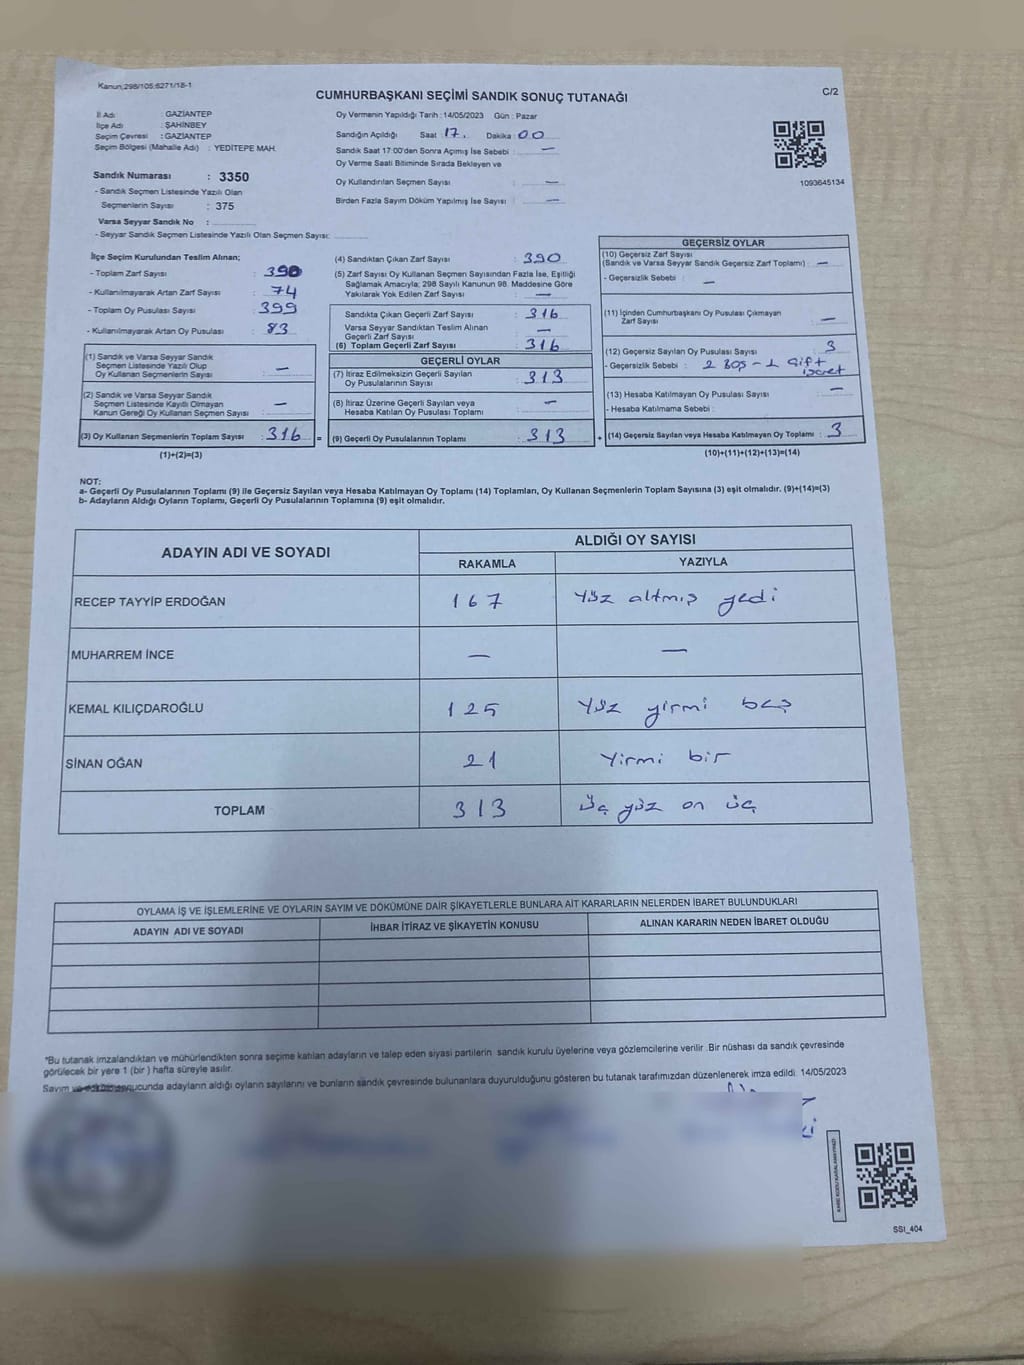 Kanun;298/105;6271/18-1
CUMHURBAŞKANI SEÇİMİ SANDIK SONUÇ TUTANAĞI
C/2
İl Adı : GAZİANTEP
İlçe Adı : ŞAHİNBEY
Seçim Çevresi : GAZİANTEP
Seçim Bölgesi (Mahalle Adı) : YEDİTEPE MAH.
Sandık Numarası : 3350
- Sandık Seçmen Listesinde Yazılı Olan
Seçmenlerin Sayısı : 375
Varsa Seyyar Sandık No :
- Seyyar Sandık Seçmen Listesinde Yazılı Olan Seçmen Sayısı:
Oy Vermenin Yapıldığı Tarih : 14/05/2023 Gün : Pazar
Sandığın Açıldığı Saat 17. Dakika : 00
Sandık Saat 17:00'den Sonra Açımış İse Sebebi : —
Oy Verme Saati Bitiminde Sırada Bekleyen ve
Oy Kullandırılan Seçmen Sayısı : —
Birden Fazla Sayım Döküm Yapılmış İse Sayısı : —
1093645134
İlçe Seçim Kurulundan Teslim Alınan;
- Toplam Zarf Sayısı : 390
- Kullanılmayarak Artan Zarf Sayısı : 74
- Toplam Oy Pusulası Sayısı : 399
- Kullanılmayarak Artan Oy Pusulası : 83
(1) Sandık ve Varsa Seyyar Sandık
Seçmen Listesinde Yazılı Olup
Oy Kullanan Seçmenlerin Sayısı : —
(2) Sandık ve Varsa Seyyar Sandık
Seçmen Listesinde Kayıtlı Olmayan
Kanun Gereği Oy Kullanan Seçmen Sayısı : —
(3) Oy Kullanan Seçmenlerin Toplam Sayısı : 316 =
(1)+(2)=(3)
(4) Sandıktan Çıkan Zarf Sayısı : 390
(5) Zarf Sayısı Oy Kullanan Seçmen Sayısından Fazla İse, Eşitliği
Sağlamak Amacıyla; 298 Sayılı Kanunun 98. Maddesine Göre
Yakılarak Yok Edilen Zarf Sayısı : —
Sandıkta Çıkan Geçerli Zarf Sayısı : 316
Varsa Seyyar Sandıktan Teslim Alınan
Geçerli Zarf Sayısı : —
(6) Toplam Geçerli Zarf Sayısı : 316
GEÇERLİ OYLAR
(7) İtiraz Edilmeksizin Geçerli Sayılan
Oy Pusulalarının Sayısı : 313
(8) İtiraz Üzerine Geçerli Sayılan veya
Hesaba Katılan Oy Pusulası Toplamı : —
(9) Geçerli Oy Pusulalarının Toplamı : 313 +
GEÇERSİZ OYLAR
(10) Geçersiz Zarf Sayısı
(Sandık ve Varsa Seyyar Sandık Geçersiz Zarf Toplamı) : —
- Geçersizlik Sebebi : —
(11) İçinden Cumhurbaşkanı Oy Pusulası Çıkmayan
Zarf Sayısı : —
(12) Geçersiz Sayılan Oy Pusulası Sayısı : 3
- Geçersizlik Sebebi : 2 Boş - 1 Çift
işaret
(13) Hesaba Katılmayan Oy Pusulası Sayısı : —
- Hesaba Katılmama Sebebi :
(14) Geçersiz Sayılan veya Hesaba Katılmayan Oy Toplamı : 3
(10)+(11)+(12)+(13)=(14)
NOT:
a- Geçerli Oy Pusulalarının Toplamı (9) ile Geçersiz Sayılan veya Hesaba Katılmayan Oy Toplamı (14) Toplamları, Oy Kullanan Seçmenlerin Toplam Sayısına (3) eşit olmalıdır. (9)+(14)=(3)
b- Adayların Aldığı Oyların Toplamı, Geçerli Oy Pusulalarının Toplamına (9) eşit olmalıdır.
ADAYIN ADI VE SOYADI
ALDIĞI OY SAYISI
RAKAMLA YAZIYLA
RECEP TAYYİP ERDOĞAN 167 Yüz altmış yedi
MUHARREM İNCE — —
KEMAL KILIÇDAROĞLU 125 Yüz yirmi beş
SİNAN OĞAN 21 Yirmi bir
TOPLAM 313 üç yüz on üç
OYLAMA İŞ VE İŞLEMLERİNE VE OYLARIN SAYIM VE DÖKÜMÜNE DAİR ŞİKAYETLERLE BUNLARA AİT KARARLARIN NELERDEN İBARET BULUNDUKLARI
ADAYIN ADI VE SOYADI İHBAR İTİRAZ VE ŞİKAYETİN KONUSU ALINAN KARARIN NEDEN İBARET OLDUĞU
*Bu tutanak imzalandıktan ve mühürlendikten sonra seçime katılan adayların ve talep eden siyasi partilerin sandık kurulu üyelerine veya gözlemcilerine verilir .Bir nüshası da sandık çevresinde
görülecek bir yere 1 (bir ) hafta süreyle asılır.
Sayım adayların aldığı oyların sayılarını ve bunların sandık çevresinde bulunanlara duyurulduğunu gösteren bu tutanak tarafımızdan düzenlenerek imza edildi. 14/05/2023
SSI_404